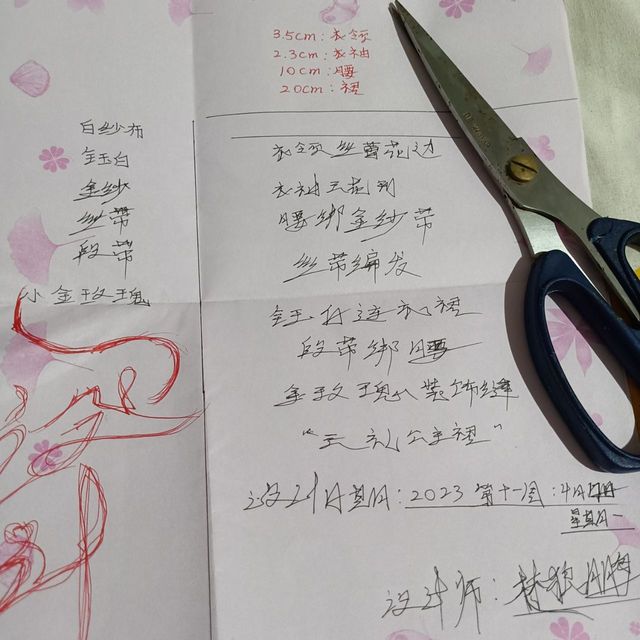 3.5cm:衣领
2.3cm:衣袖
10cm:腰
20cm:裙
白纱布
金纱
丝带
段带
小金玫瑰
衣领丝蕾花边
衣袖
腰绑金纱带
丝带编发
段带绑腰
金玫瑰 装饰缝
"天礼公主裙"
设计日期:2023 第十一周:4月
星期一
设计师: